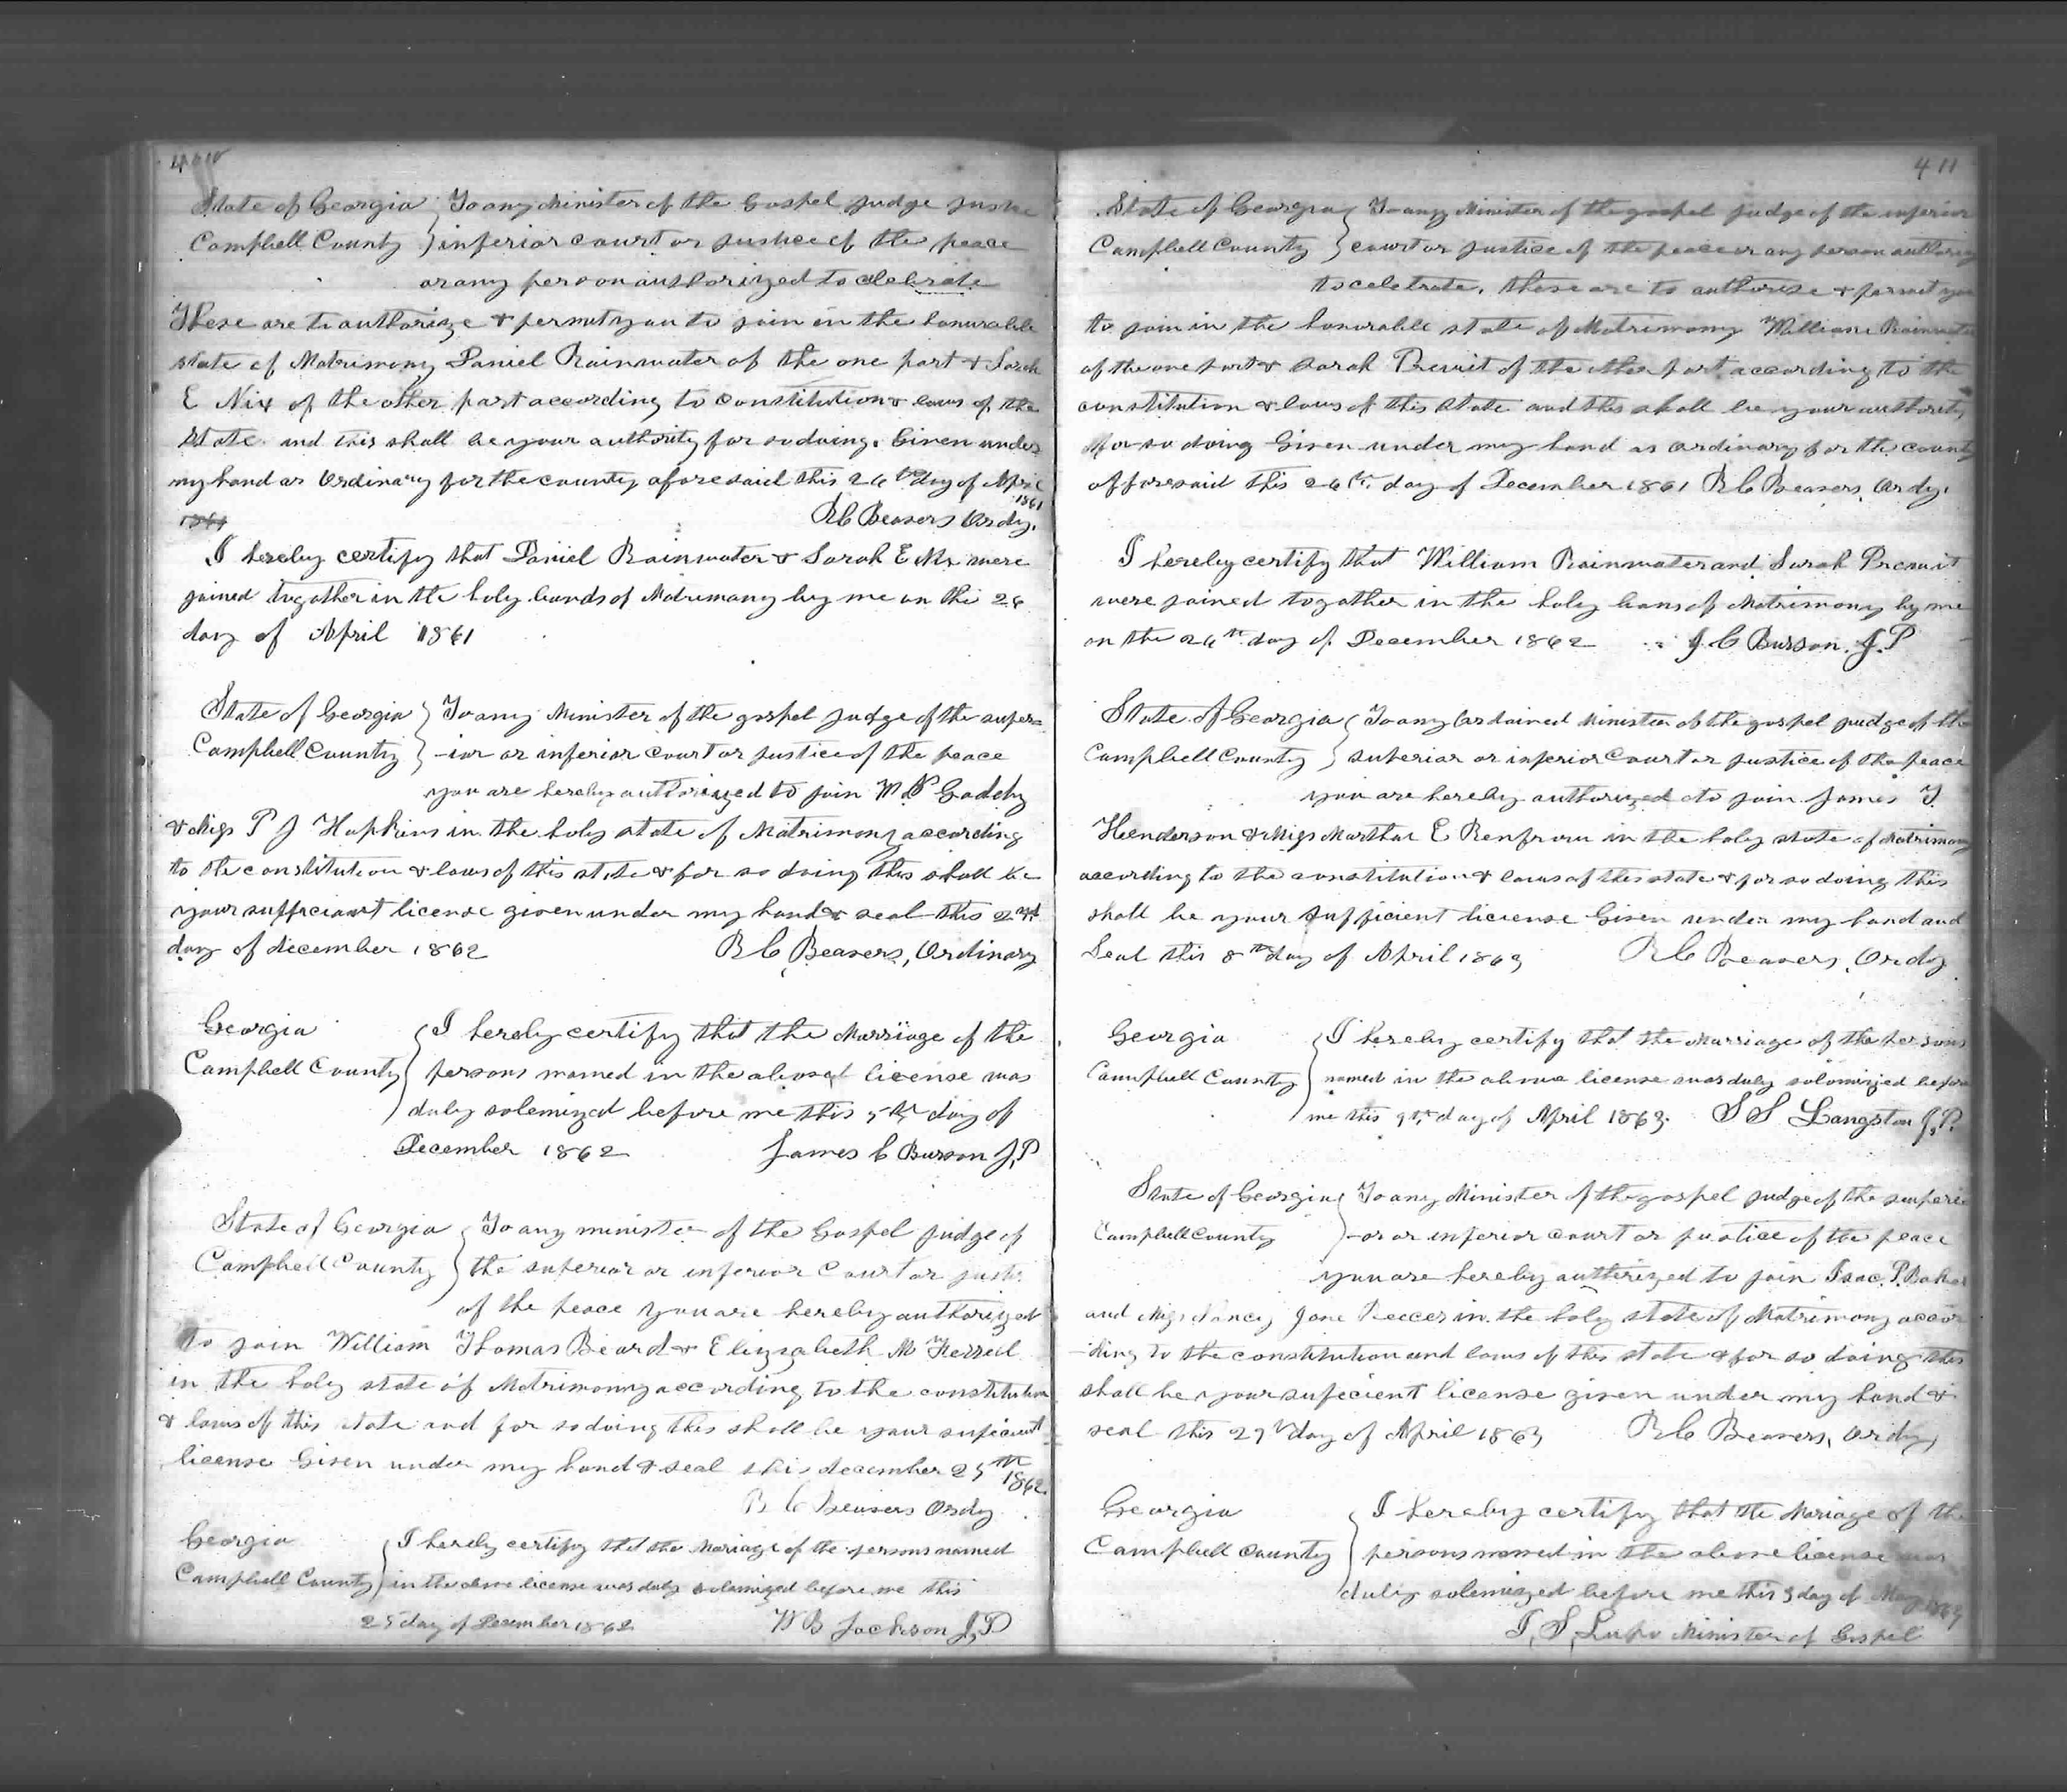 410
State of Georgia } To any Minister of the Gospel judge justice
Campbell County } inferior court or justice of the peace
or any person authorized to celebrate
These are to authorize & permit you to join in the honorable
state of Matrimony Daniel Rainwater of the one part & Sarah
E Nix of the other part according to constitution & laws of the
State and this shall be your authority for so doing. Given under
my hand as Ordinary for the county aforesaid this 26th day of April
1861
1861 R C Beavers Ordy.
I hereby certify that Daniel Rainwater & Sarah E Nix were
joined together in the holy bonds of Matrimony by me on this 26
day of April 1861
State of Georgia } To any Minister of the gospel judge of the super=
Campbell County } -ior or inferior court or justice of the peace
you are hereby authorized to join W P Gaddy
& Miss P J Hopkins in the holy state of Matrimony according
to the constitution & laws of this state & for so doing this shall be
your sufficient license given under my hand & seal this 2nd
day of december 1862 R C Beavers, Ordinary
Georgia } I hereby certify that the Marriage of the
Campbell County } persons named in the above license was
duly solemized before me this 5th day of
December 1862 James C Burson J.P
State of Georgia } To any minister of the Gospel judge of
Campbell County } the superior or inferior Court or justi
of the peace you are hereby authorized
to join William Thomas Beard & Elizabeth M
in the holy state of Matrimony according to the constitution
& laws of this state and for so doing this shall be your suficient
license Given under my hand & seal this december 25th
1862.
R C Beavers Ordy
Georgia } I hereby certify that the Mariage of the persons named
Campbell County } in the above license was duly solemized before me this
25 day of December 1862 W B Jackson J,P
411
State of Georgia } To any Minister of the gospel judge of the inferior
Campbell County } court or justice of the peace or any person authoriz
to celebrate. these are to authorise & permit you
to join in the honorable state of Matrimony William Rainwater
of the one part & Sarah Prewit of the other part according to the
constitution & laws of this State and this shall be your authority
for so doing Given under my hand as Ordinary for the county
afforesaid this 26th day of December 1861 R C Beavers, Ordy.
I hereby certify that William Rainwater and Sarah Prewit
were joined together in the holy bons of Matrimony by me
on the 26th day of December 1862 J. C Burson. J.P
State of Georgia } To any Ordained Minister of the gospel judge of the
Campbell County } superior or inferior Court or justice of the peace
you are hereby authorized to join James T
Henderson & Miss Marthar E Renfrow in the holy state of Matrimony
according to the constitution & laws of this state & for so doing this
shall be your sufficient license Given under my hand and
Seal this 8th day of April 1863 R C Beavers, Ordy
Georgia } I hereby certify that the Marriage of the persons
Campbell County } named in the above license was duly solomized before
me this 9th day of April 1863. S S Langston J,P.
State of Georgia } To any Minister of the gospel judge of the superi
Campbell County } -or or inferior court or justice of the peace
you are hereby autherized to join Isac. P. Baker
and Miss Nancy Jane in the holy state of Matrimony accor
-ding to the constitution and laws of this state & for so doing this
shall be your suficient license given under my hand &
seal this 29th day of April 1863 R C Beavers, Ordy
Georgia } I hereby certify that the Mariage of the
Campbell County } persons named in the above license was
duly solemized before me this 3 day of May 1863
Minister of Gospel